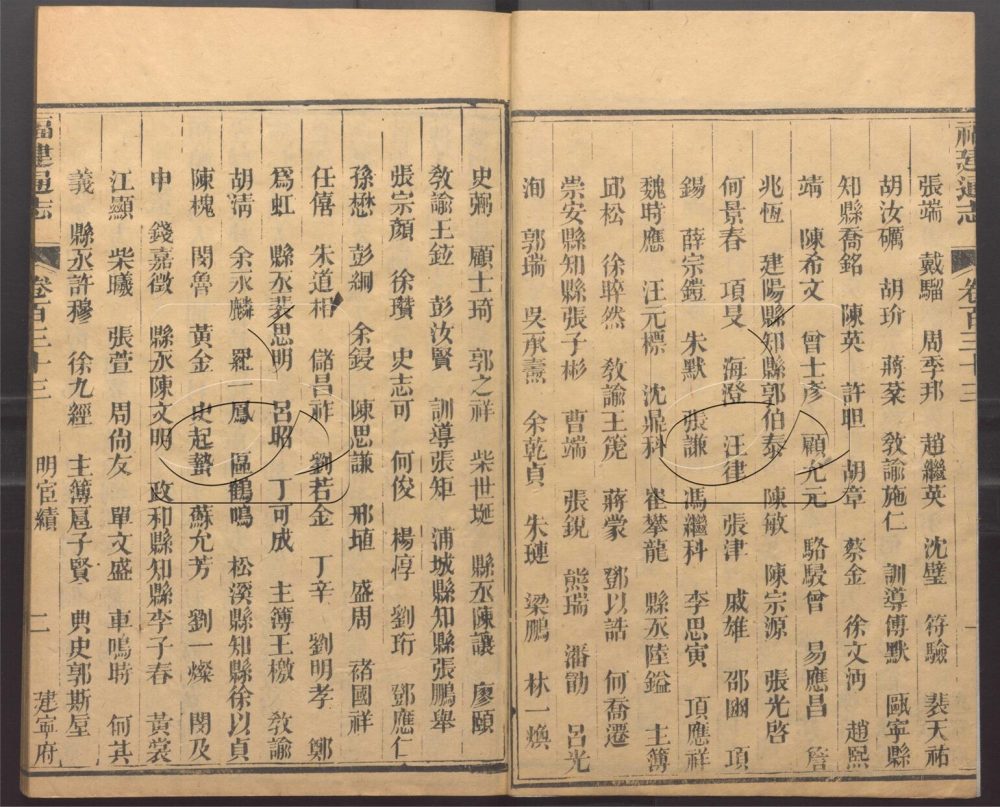 張端 戴騮 周季邦 趙繼英 沈璧 符驗 裴天祐
胡汝礪 胡玠 蔣棻 敎諭施仁 訓導傅默 甌寧縣
知縣喬銘 陳英 許耼 胡章 蔡金 徐文沔 趙熙
靖 陳希文 曾士彥 顧允元 駱駸曾 易應昌 詹
兆恆 建陽縣知縣郭伯泰 陳敏 陳宗源 張光啓
何景春 項旻 海澄 汪律 張津 戚雄 邵豳 項
錫 薛宗鎧 朱默 張謙 馮繼科 李思寅 項應祥
魏時應 汪元標 沈鼎科 崔攀龍 縣丞陸鎰 主簿
邱松 徐晬然 敎諭王箎 蔣蒙 鄧以誥 何喬遷
崇安縣知縣張子彬 曹端 張銳 熊瑞 潘勖 呂光
洵 郭瑞 吳承燾 余乾貞 朱璉 梁鵬 林一煥
福建通志 卷百三十三 一
史弼 顧士琦 郭之祥 柴世埏 縣丞陳讓 廖頤
敎諭王鉝 彭汝賢 訓導張矩 浦城縣知縣張鵬舉
張宗顏 徐瓚 史志可 何俊 楊惇 劉珩 鄧應仁
孫懋 彭綱 余鋟 陳思謙 邢埴 盛周 褚國祥
任僖 朱道相 儲昌祚 劉若金 丁辛 劉明孝 鄭
爲虹 縣丞裴思明 呂昭 丁可成 主簿王檄 敎諭
胡淸 余永麟 羅一鳳 區鶴鳴 松溪縣知縣徐以貞
陳槐 閔魯 黃金 史起蟄 蘇允芳 劉一燦 閔及
申 錢嘉徵 縣丞陳文明 政和縣知縣李子春 黃裳
江顯 柴曦 張萱 周尙友 單文盛 車鳴時 何其
義 縣丞許穆 徐九經 主簿扈子賢 典史郭斯垕
福建通志 卷百三十三 明宦績 二 建寧府